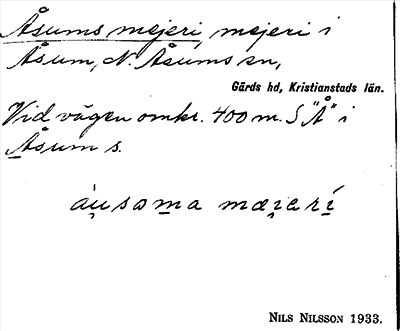 Åsums mejeri, mejeri i
Åsum, N. Åsums sn,
Gärds hd, Kristianstads län.
Vid vägen omkr. 400 m. S "Å" i
Åsum s.
Nils Nilsson 1933.